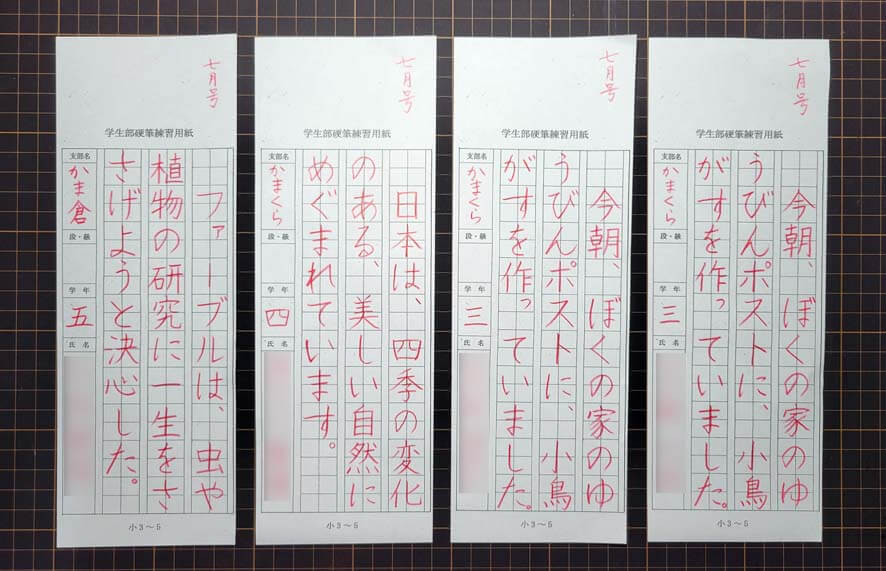 七月号
学生部硬筆練習用紙
今朝、ぼくの家のゆ
うびんポストに、小鳥
がすを作っていました。
支部名
かまくら
段・級
学年
三
氏名
小3～5
七月号
学生部硬筆練習用紙
今朝、ぼくの家のゆ
うびんポストに、小鳥
がすを作っていました。
支部名
かまくら
段・級
学年
三
氏名
小3～5
七月号
学生部硬筆練習用紙
日本は、四季の変化
のある、美しい自然に
めぐまれています。
支部名
かまくら
段・級
学年
四
氏名
小3～5
七月号
学生部硬筆練習用紙
ファーブルは、虫や
植物の研究に一生をさ
さげようと決心した。
支部名
かま倉
段・級
学年
五
氏名
小3～5